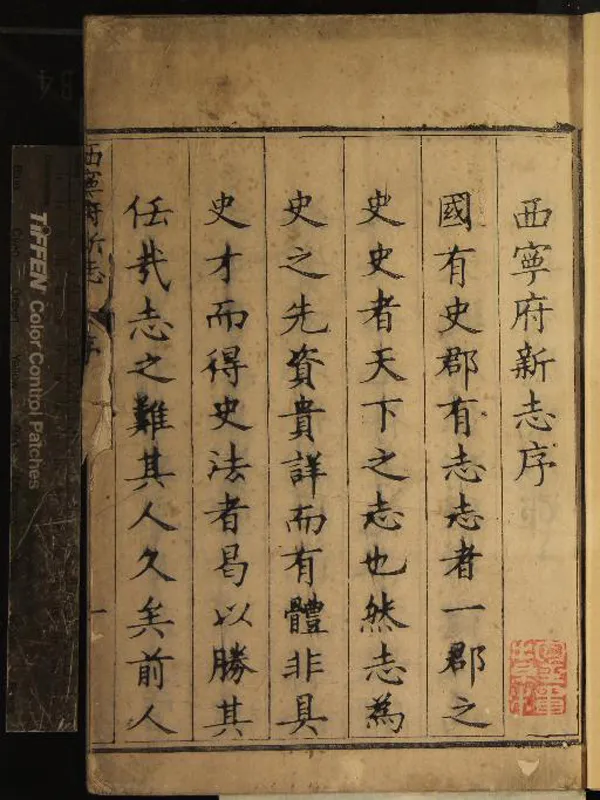 西寧府新志序
國有史郡有志志者一郡之
史史者天下之志也然志為
史之先資貴詳而有體非具
史才而得史法者曷以勝其
任哉志之難其人久矣前人
西寧府新志
序
一
TIFFEN Color Control Patches